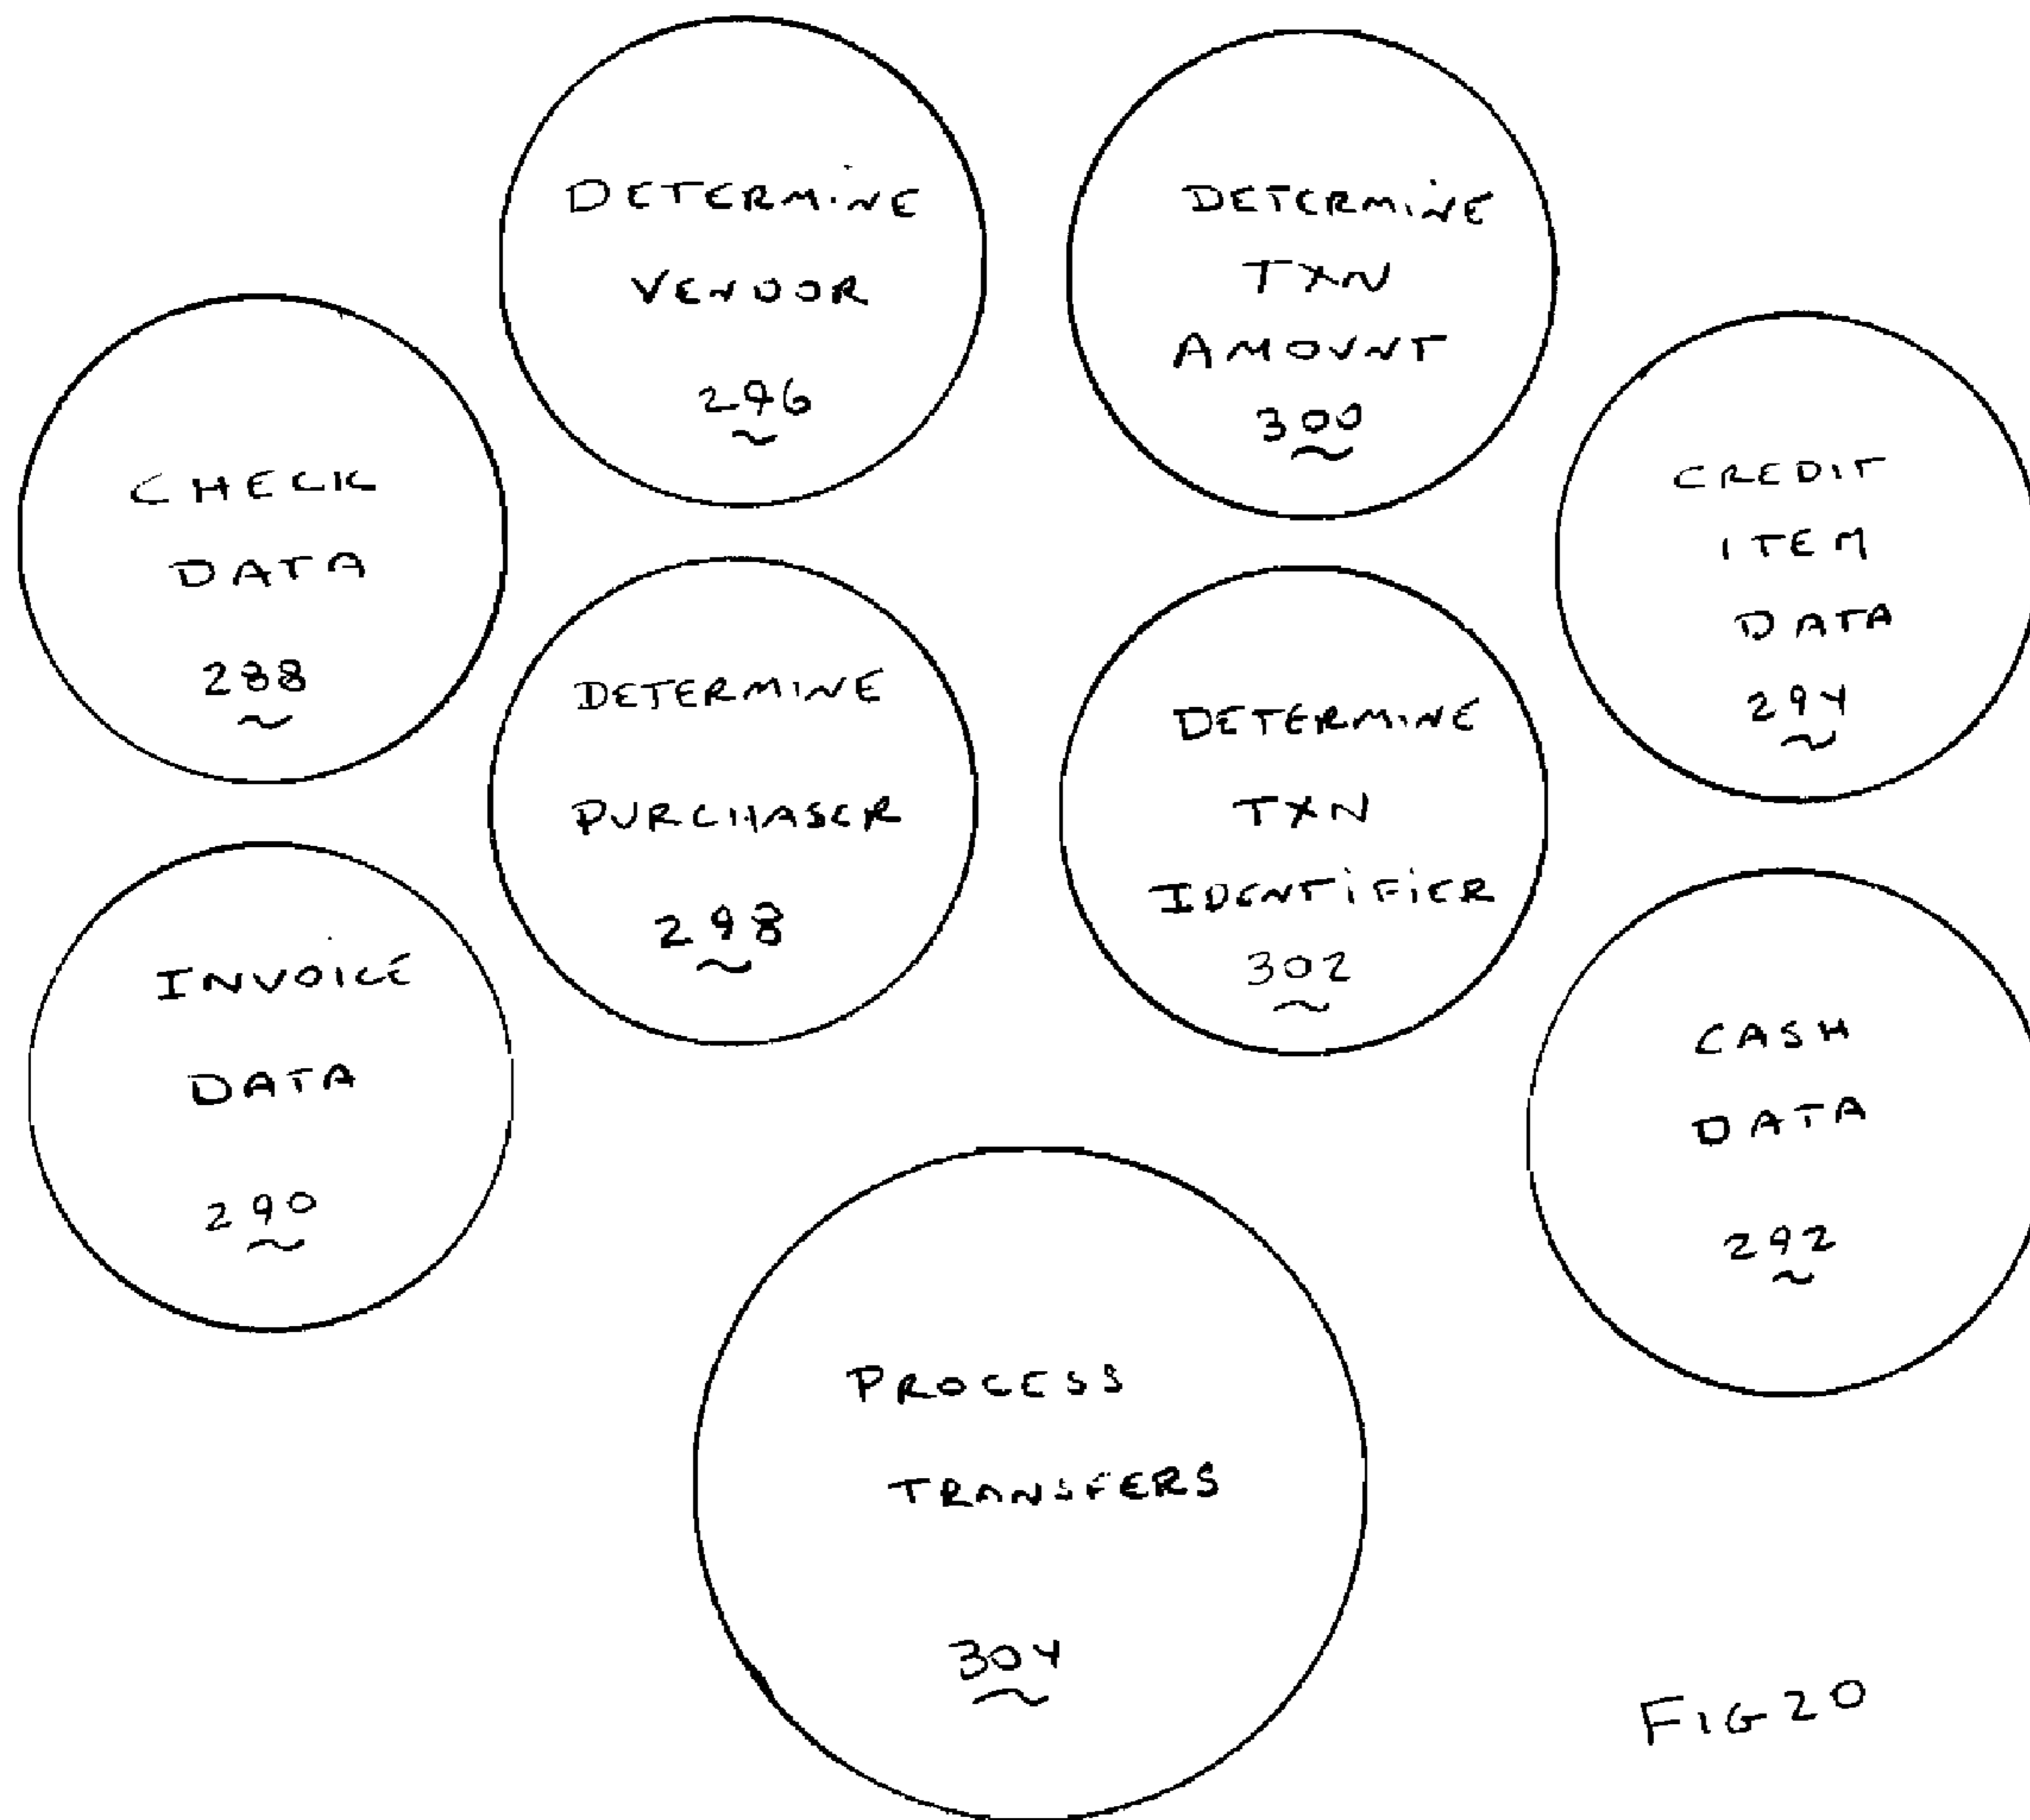 DETERMINE
VENDOR
296
DETERMINE
TXN
AMOUNT
300
CHECK
DATA
288
CREDIT
ITEM
DATA
294
DETERMINE
PURCHASER
298
DETERMINE
TXN
IDENTIFIER
302
INVOICE
DATA
290
CASH
DATA
292
PROCESS
TRANSFERS
304
FIG 20